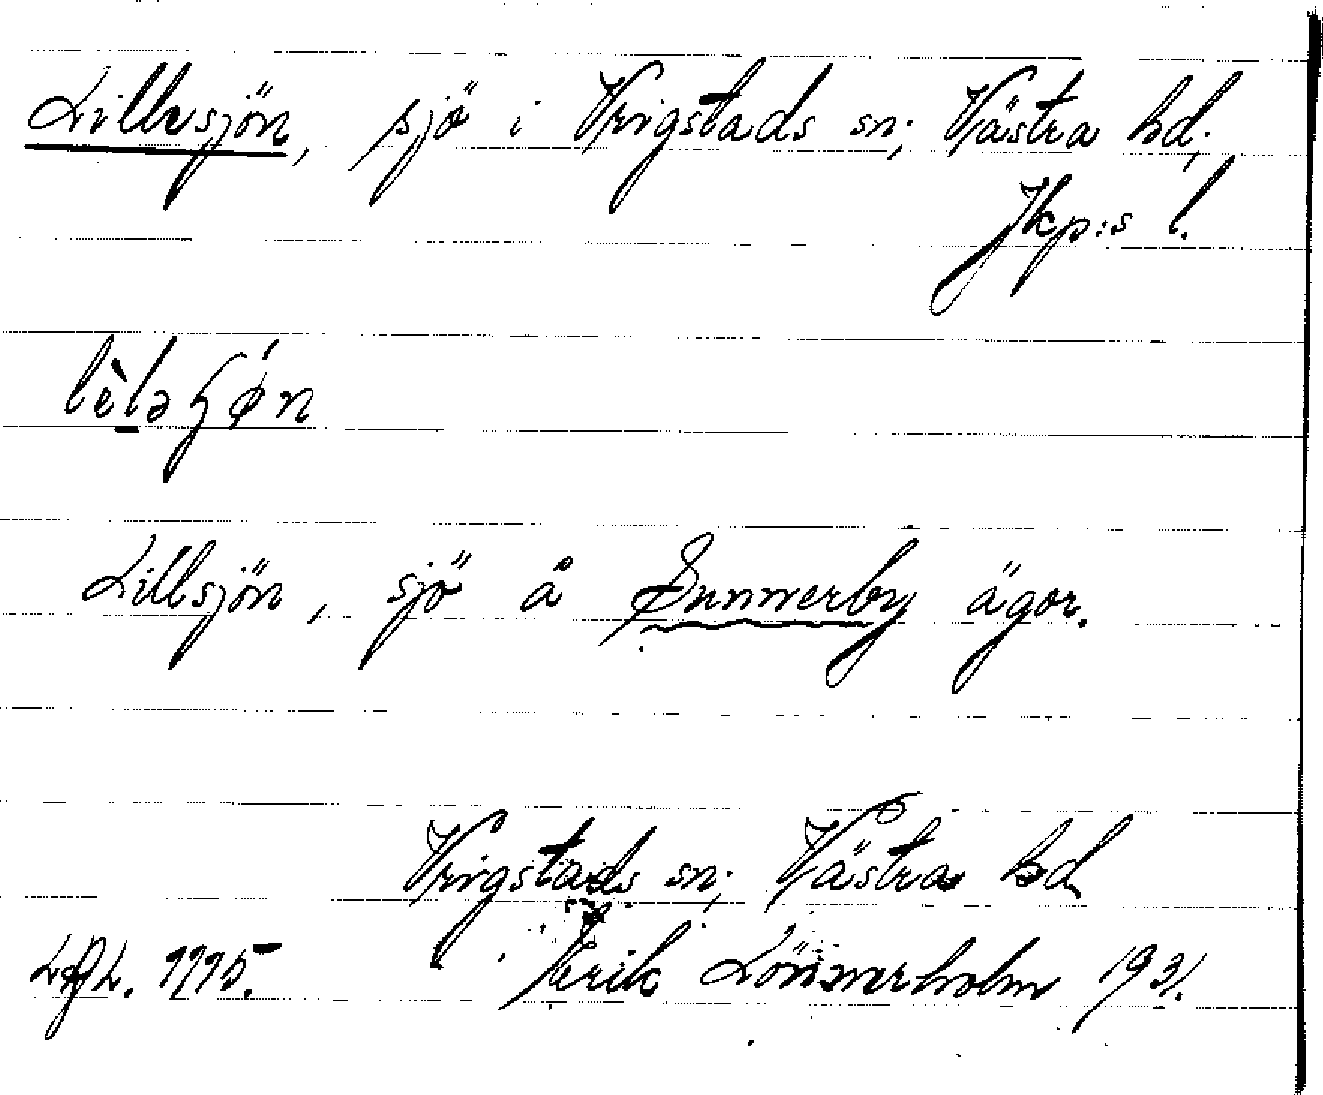 Lillesjön, sjö i Vrigstads sn; Västra hd;
Jkp:s l.
Lillsjön, sjö å Sunnerby ägor.
Vrigstads sn; Västra hd
1995. Erik Lönnerholm 1931.